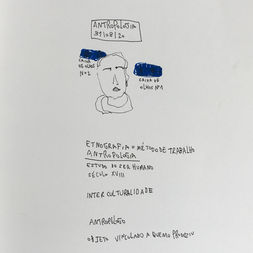 ANTROPOLOGIA
CAIXA
DE OLHOS
Nº2
CAIXA DE
OLHOS Nº1
ETNOGRAFIA = MÉTODO DE TRABALHO
ANTROPOLOGIA
ESTUDO DO SER HUMANO
SÉCULO XVIII
INTERCULTURALIDADE
ANTROPOLÓGICO
OBJETO VINCULADO A QUEM O PRODUZIU